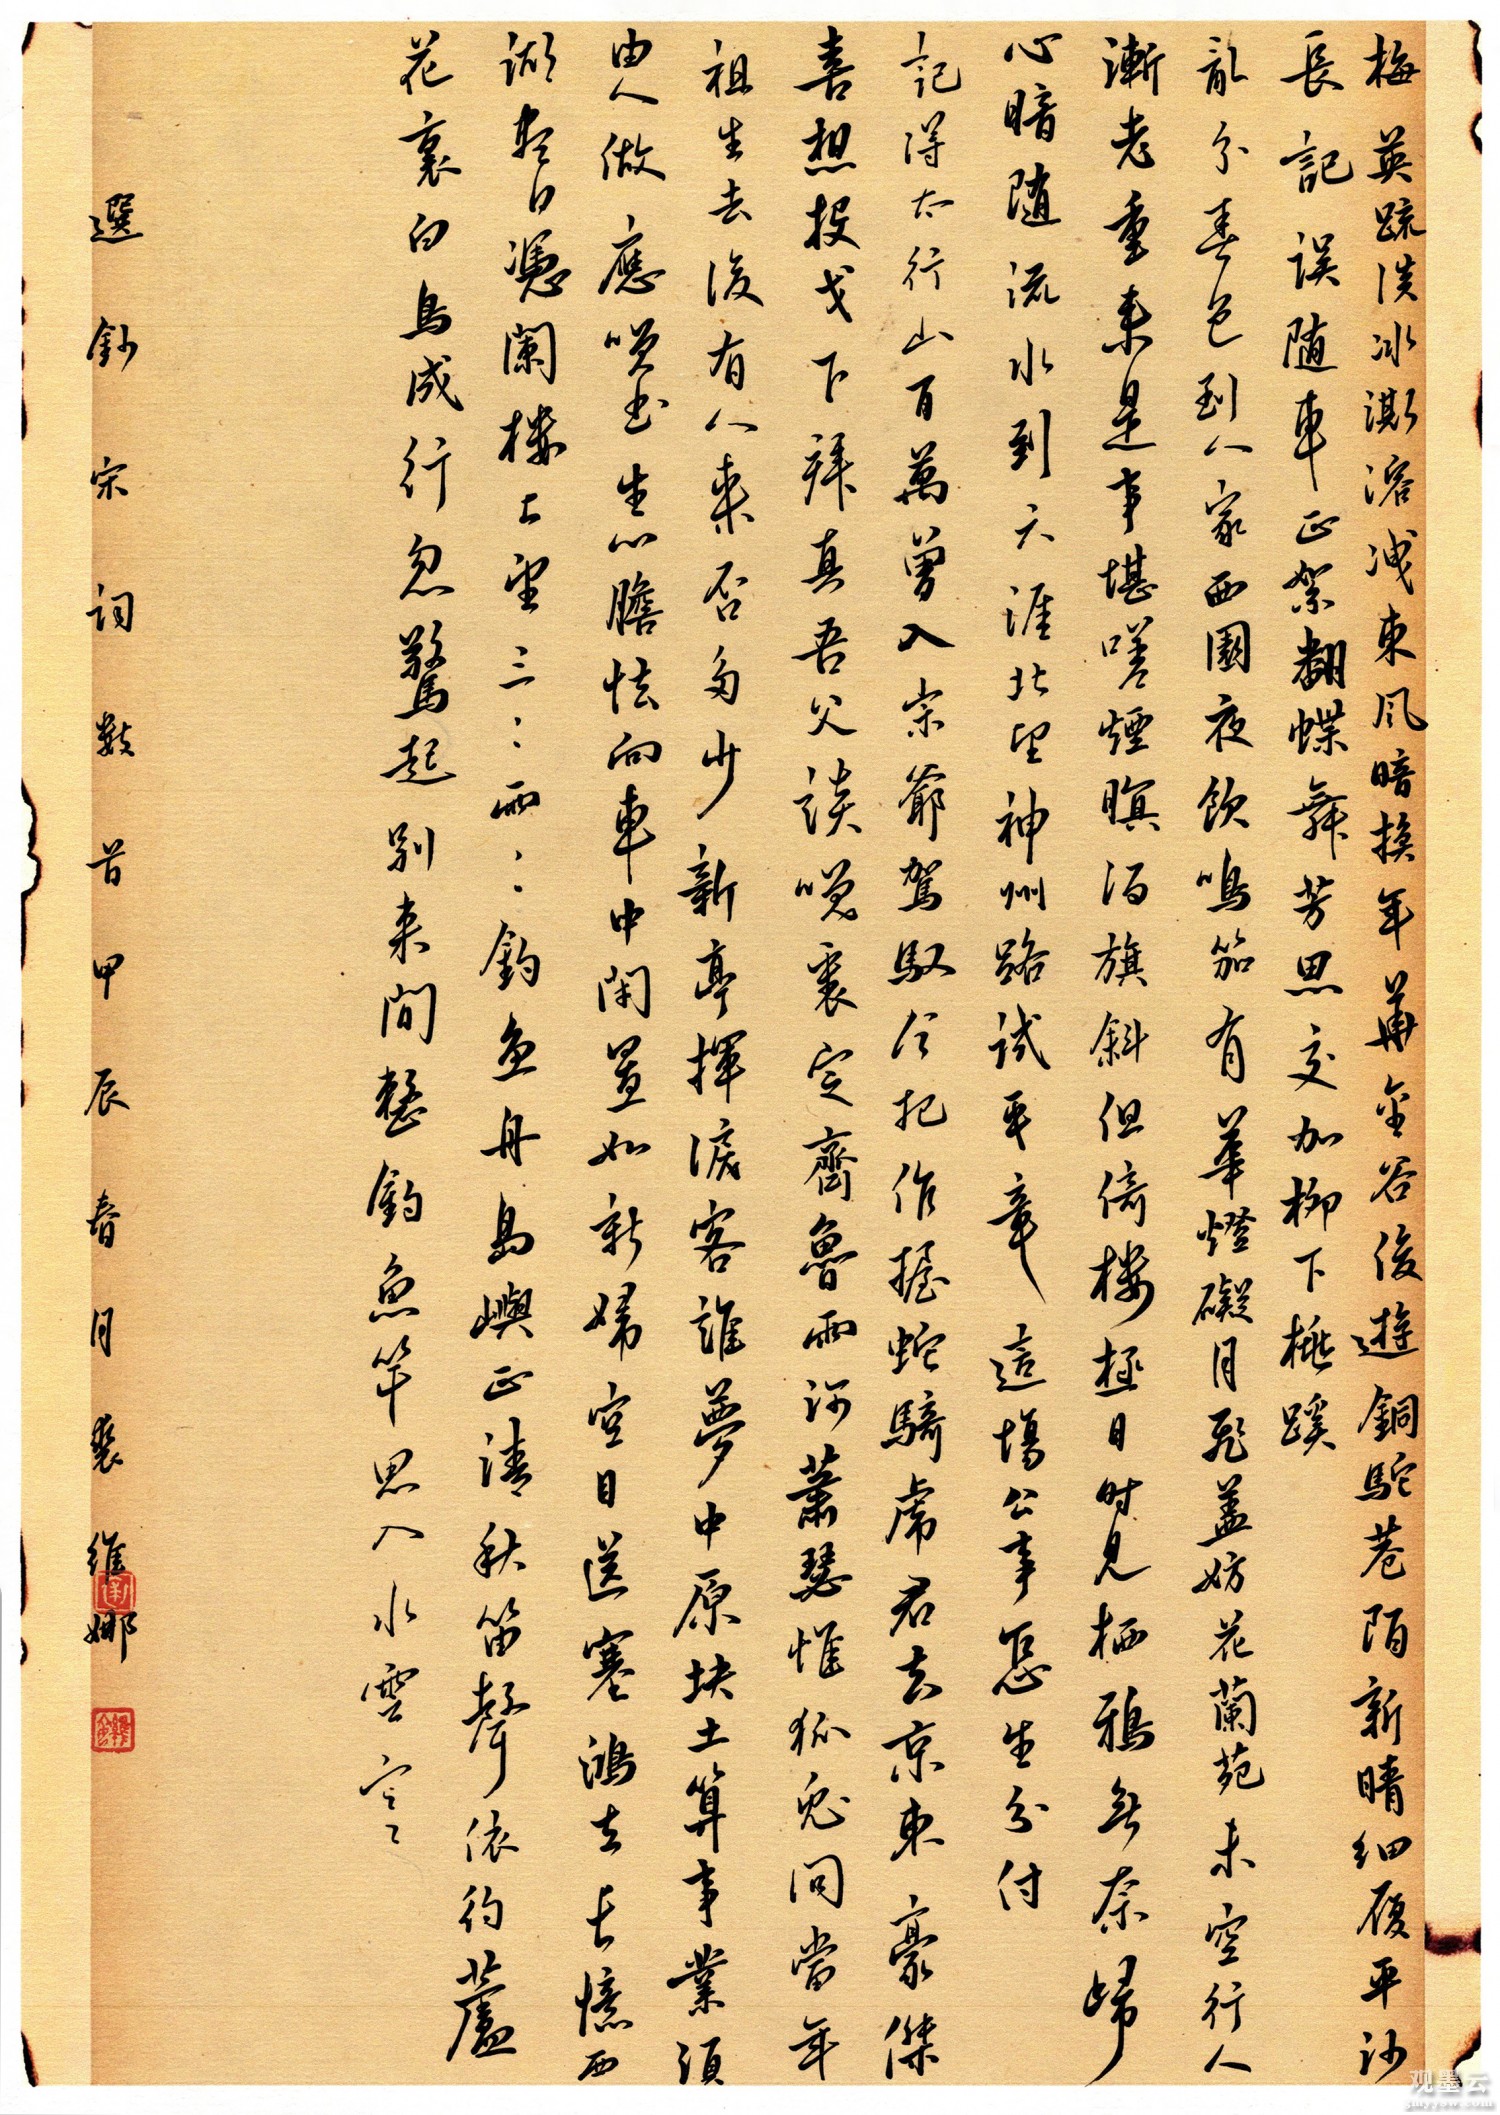 梅英疏淡冰澌溶洩東風暗換年華金谷俊遊銅駝巷陌新晴細履平沙
長記誤隨車正絮翻蝶舞芳思交加柳下桃蹊
亂分春色到人家西園夜飲鳴笳有華燈礙月飛蓋妨花蘭苑未空行人
漸老重來是事堪嗟煙暝酒旗斜但倚樓極目時見栖鴉無奈歸
心暗隨流水到天涯北望神州路試平章這場公事怎生分付
記得太行山百萬曾入宗爺駕馭今把作握蛇騎虎君去京東豪傑
喜想投戈下拜真吾父談笑裏定齊魯兩河蕭瑟惟狐兔問當年
祖生去後有人來否多少新亭揮淚客誰夢中原塊土算事業須
由人做應笑書生心膽怯向車中閉置如新婦空目送塞鴻去長憶西
湖盡日憑闌樓上望三三兩兩釣魚舟島嶼正清秋笛聲依約蘆
花裏白鳥成行忽驚起別來閒整釣魚竿思入水雲寒
選鈔宋詞數首甲辰春月裴維娜
观墨云